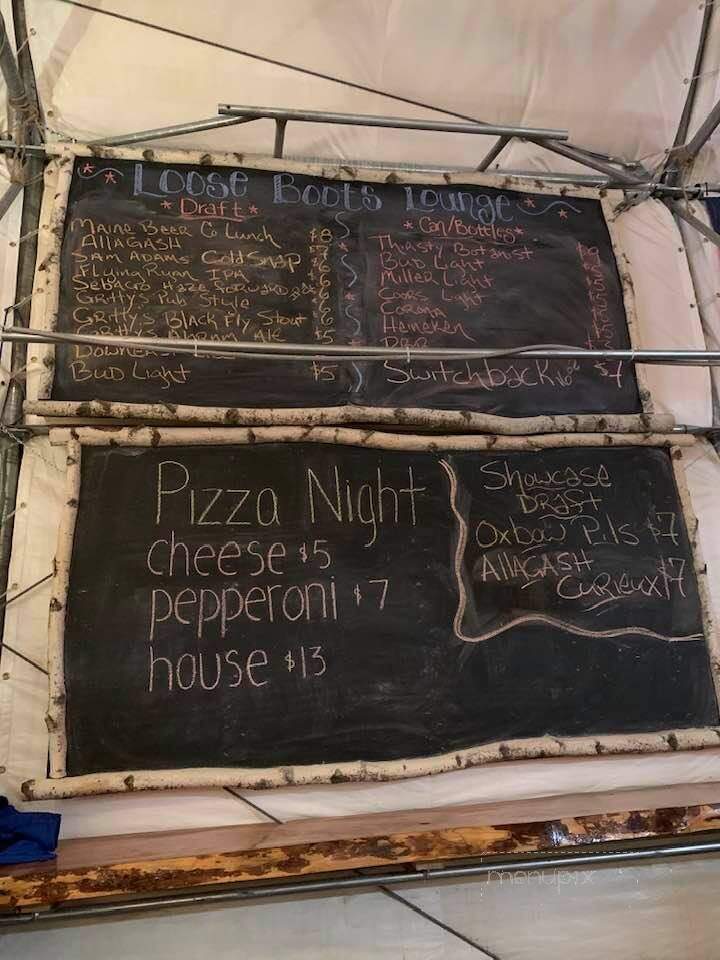 Loose Boots Lounge
Draft
Maine Beer Co Lunch $8
ALLAGASH
Sam Adams Cold Snap
Flying Ryan IPA
Sebago Haze
Gritty's Pub Style
Gritty's Black Fly Stout
Ale $5
Bud Light $5
Can/Bottles
Thirsty Botanist
Bud Light
Miller Light
Coors Light
Corona
Heineken
PBR
Switchback 16oz $7
Pizza Night
cheese $5
pepperoni $7
house $13
Showcase
Draft
Oxbow Pils $7
ALLAGASH
Curieux $7
menupix